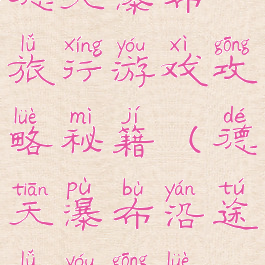 德天瀑布
lǚ xíng yóu xì gōng
旅行游戏攻
lüè mì jí dé
略秘籍（德
tiān pù bù yán tú
天瀑布沿途
lǚ yóu gōng lüè